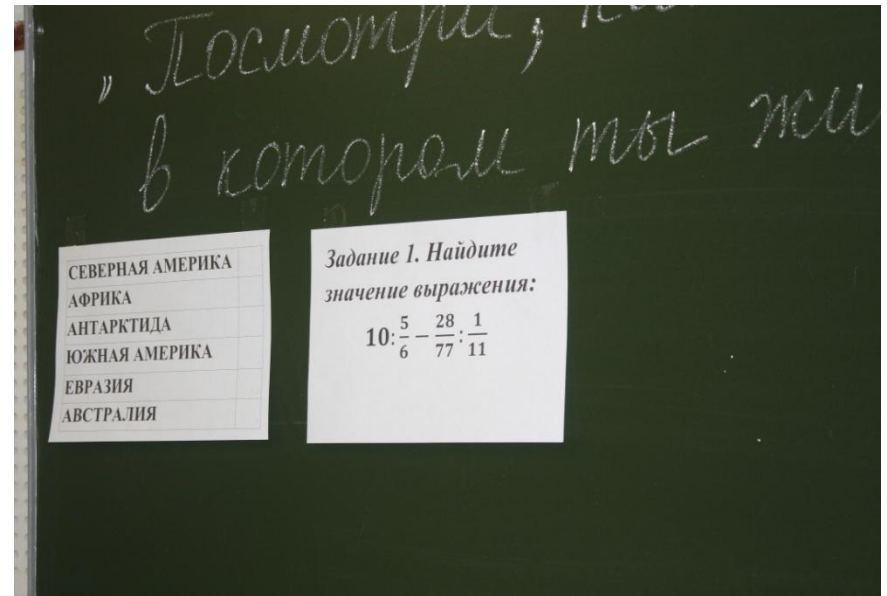 „Посмотри,
в котором ты
СЕВЕРНАЯ АМЕРИКА
АФРИКА
АНТАРКТИДА
ЮЖНАЯ АМЕРИКА
ЕВРАЗИЯ
АВСТРАЛИЯ
Задание 1. Найдите
значение выражения:
10:5/6−28/77:1/11